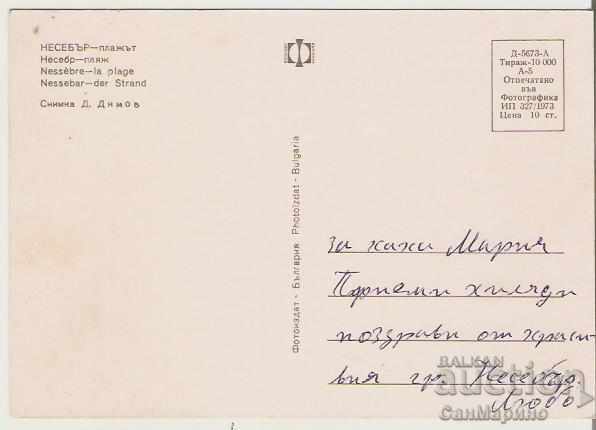 НЕСЕБЪР—плажът
Несебр—пляж
Nessèbre—la plage
Nessebar—der Strand
Снимка Д. Димов
Д-5673-А
Тираж-10 000
А-5
Отпечатано
във
Фотографика
ИП 327/1973
Цена 10 ст.
Фотоиздат - България Photoizdat - Bulgaria
За кака Мария
Приеми хиляди
поздрави от краси-
вия гр. Несебър.
Любо
BALKAN
auction
СанМарино